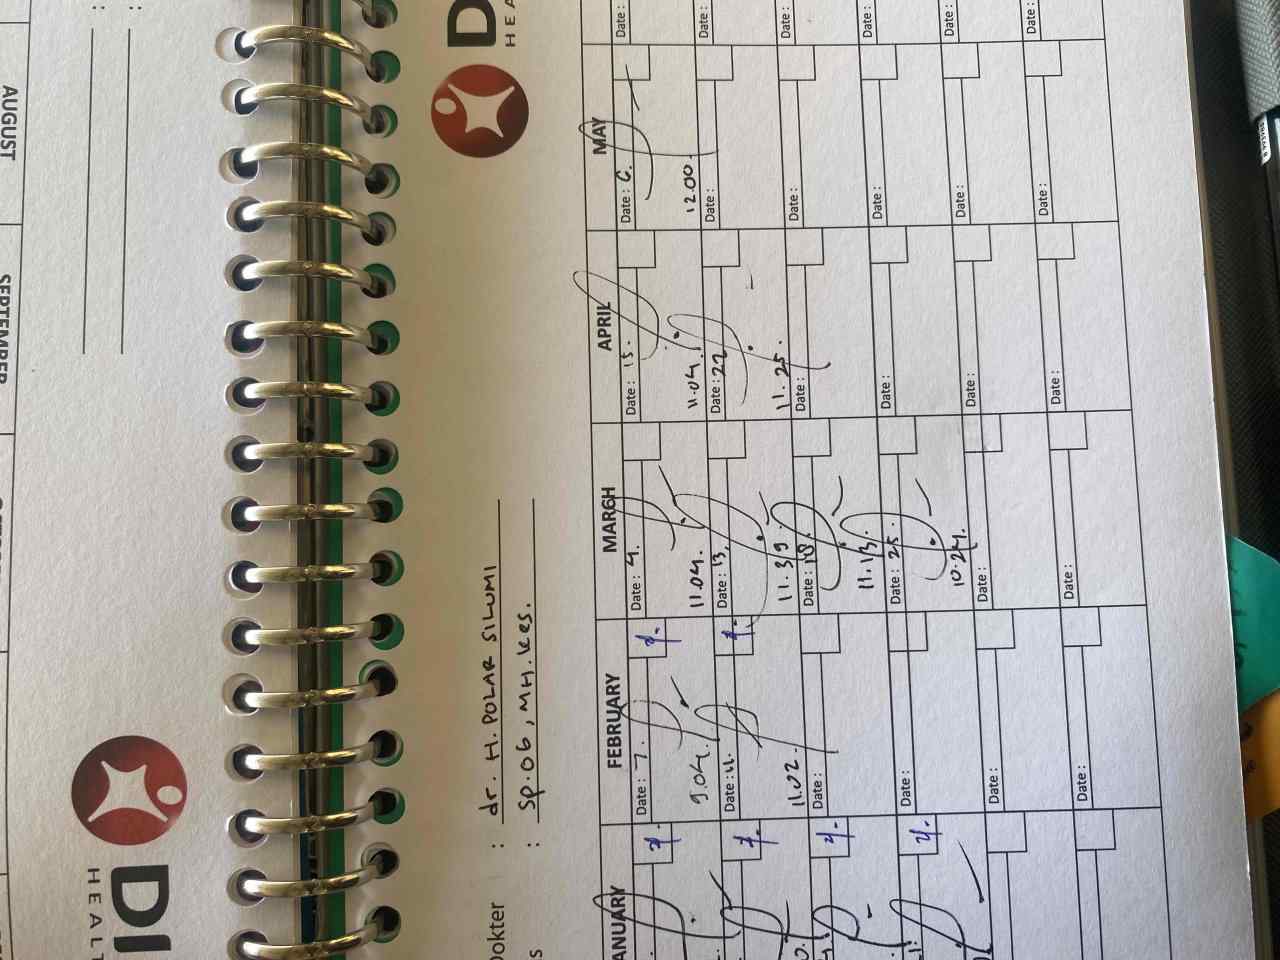 AUGUST
SEPTEMBER
DI
HEAL
D
HEA
Dokter : dr. H. POLAR SILUMI
s : Sp.OG, MH.Kes.
ANUARY FEBRUARY MARCH APRIL MAY
Date: 7. Date: 4. Date: 15. Date: 6. Date:
9.04. 11.04. 11.04. 12.00.
Date: 11. Date: 13. Date: 22 Date: Date:
11.02. 11.39 11.25.
Date: Date: 18. Date: Date: Date:
11.13.
Date: Date: 25. Date: Date: Date:
10.24.
Date: Date: Date: Date: Date:
Date: Date: Date: Date: Date: